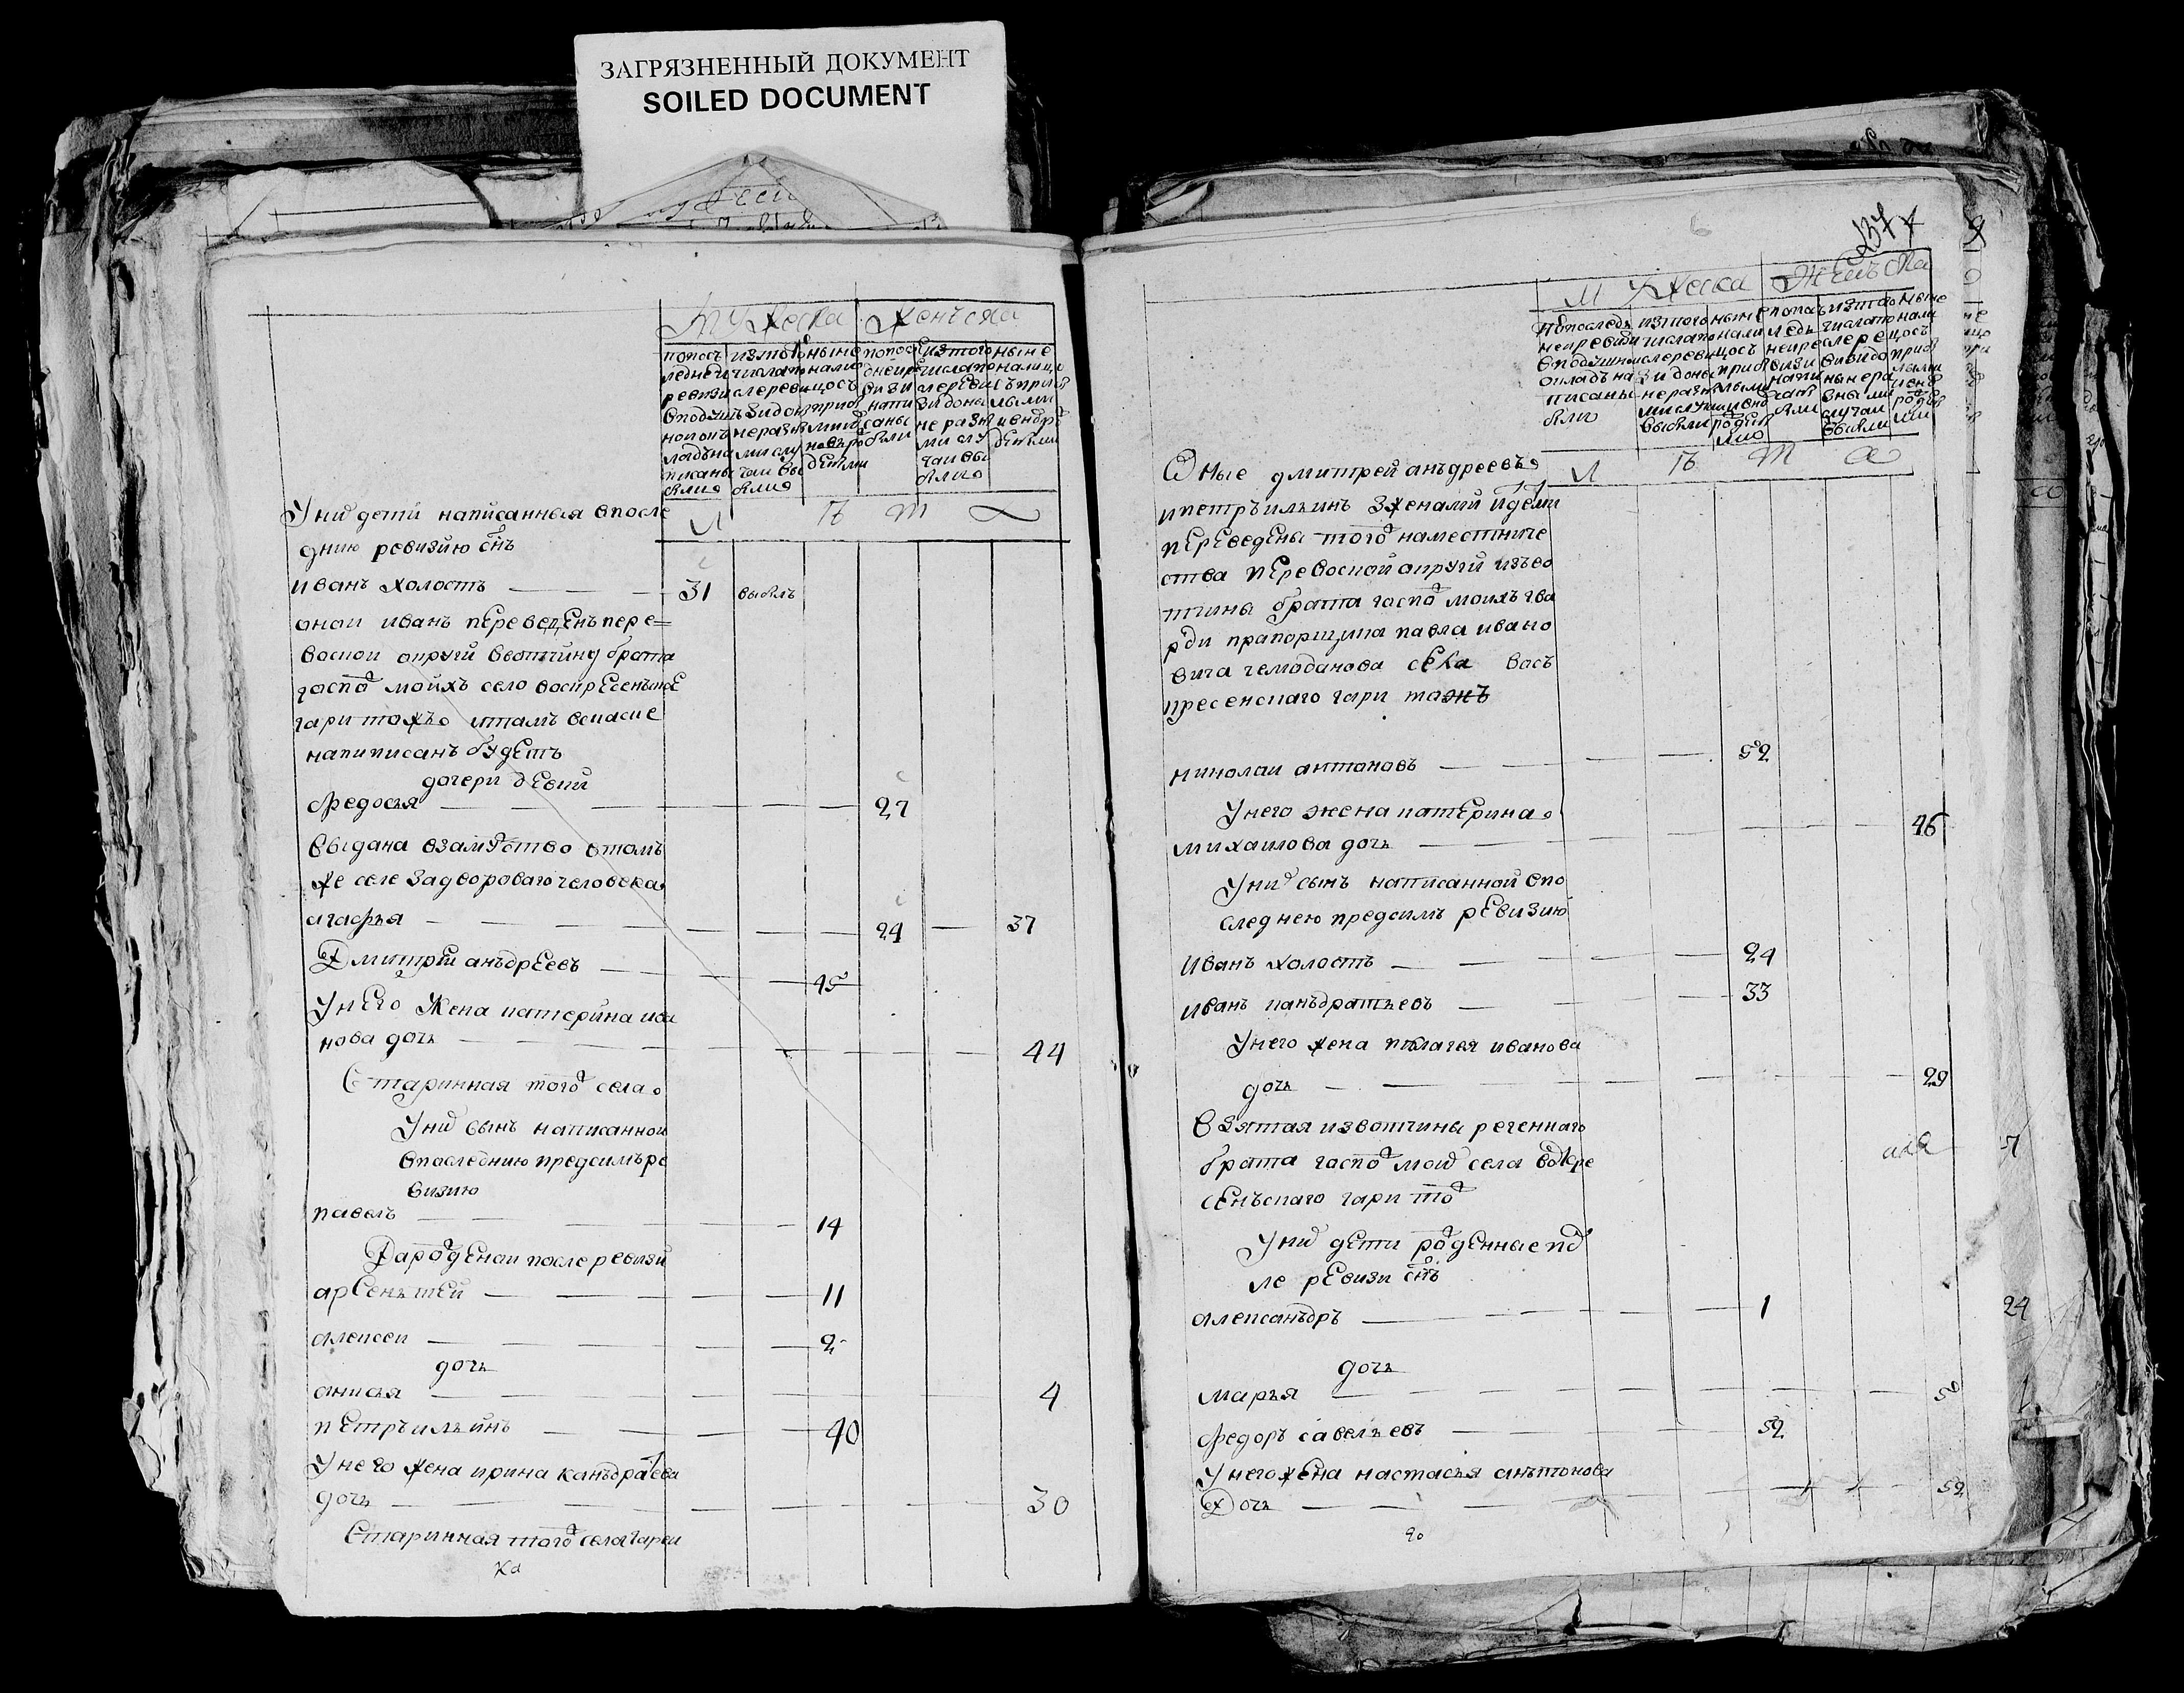 ЗАГРЯЗНЕННЫЙ ДОКУМЕНТ
SOILED DOCUMENT
Мужеска Женъска
попосъ
ледней
ревизи
вподуш
нои окъ
ладъ на
писаны
были
изтого
числа по
сле реви
зи до ны
не разны
ми слу
чаи вы
были
ныне
налиц
цосъ
при
были
новъ ро
дѣлми
попос
дней ре
визи
напи
саны
были
изтого
числа по
сле реви
зи до ны
не разн
ми слу
чаи вы
были
ныне
налиц
сприб
лыми
и внов р
дѣлми
Л Ѣ Т А
У них дети написанныя впосле
днию ревизию снъ
иванъ холостъ 31 выбылъ
онои иванъ переведенъ пере=
воской округи ввотчину брата
гасподъ моихъ село воскресенъское
гари тожъ итамъ вскаске
напиписанъ будетъ
дочери девки
Федосья 27
выдана взамуство втомъ
же селе задвороваго человека
агафья 24 37
Дмитрей анъдреевъ 45
У него жена катерина ива
нова дочь 44
Старинная того села
У них сынъ написанной
впоследнию предсимъ ре
визию
павелъ 14
Да рожденои после ревизи
арсенътей 11
алексеи 2
дочь
анисья 4
петръ ильинъ 40
У него жена ирина канъдратева
дочь 30
Старинная того села гареи
137
Мужеска Женъска
попоследъ
ней ревизи
вподушно
окладъ на
писаны
были
изтого
числа по
сле реви
зи до ны
не разн
ми случ
выбыли
ныне
нали
цосъ
приб
лыми
и вно
родел
ми
попосъ
ледъ
ней ре
визи
напи
саны
были
изтаго
числапо
сле ре
визи до
ны не ра
зными
случаи
выбыли
ныне
нали
цосъ
приб
лыми
и внов
родел
ми
Л Ѣ Т А
Оные дмитрей анъдреевъ
ипетръ ильинъ зженами идетми
переведены того наместниче
ства перевоской округи изъво
тчины брата гаспод моихъ гва
рди прапорщика павла ивано
вича чемоданова села васъ
кресенскаго гари тожъ
николаи антоновъ 52
У него жена катерина
михаилова дочь 46
У них сынъ написанной впо
следнею предсимъ ревизию
Иванъ холостъ 24
иванъ панъдратьевъ 33
У него жена пелагея иванова
дочь 29
взятая извотчины реченнаго
брата гаспод моих села воскре
сенъскаго гари тож
У них дети рожденные пос
ле ревизи снъ
алексанъдръ 1
дочь
марья 5
Федоръ савельевъ 52
У него жена настасья анътонова
Дочь 52
7
24